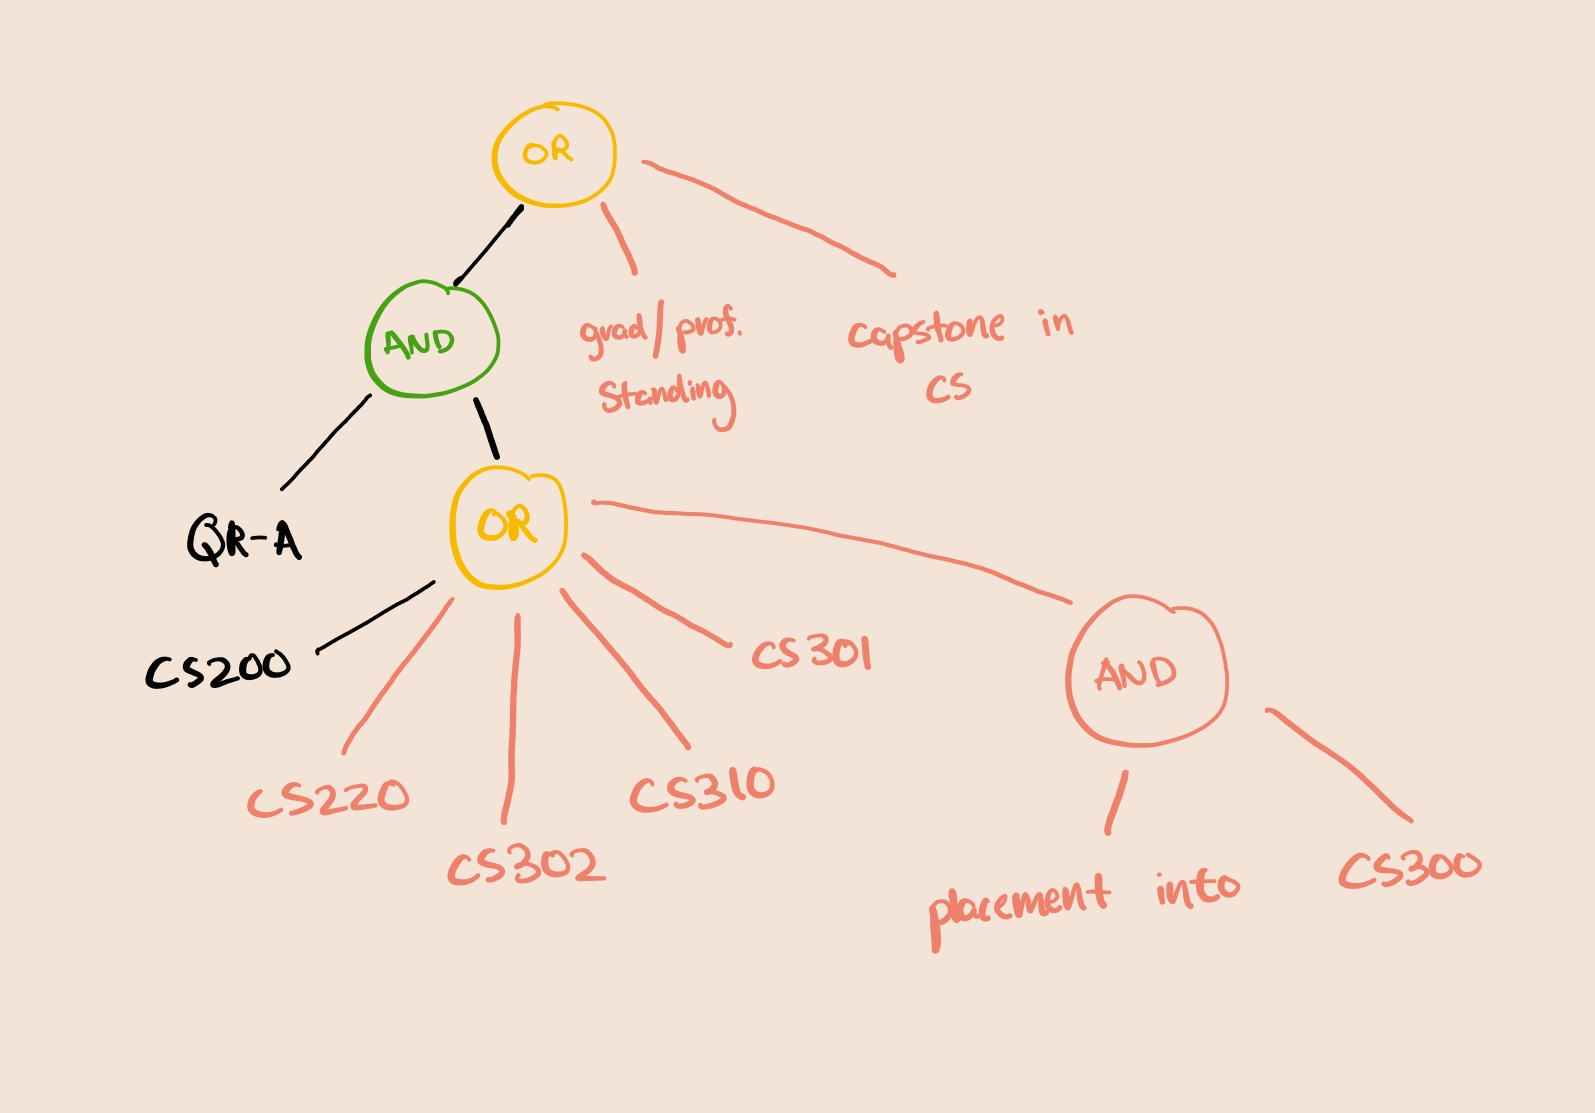 OR
AND
grad/prof.
standing
capstone in
CS
QR-A
OR
CS200
CS301
AND
CS220
CS310
CS302
placement into
CS300